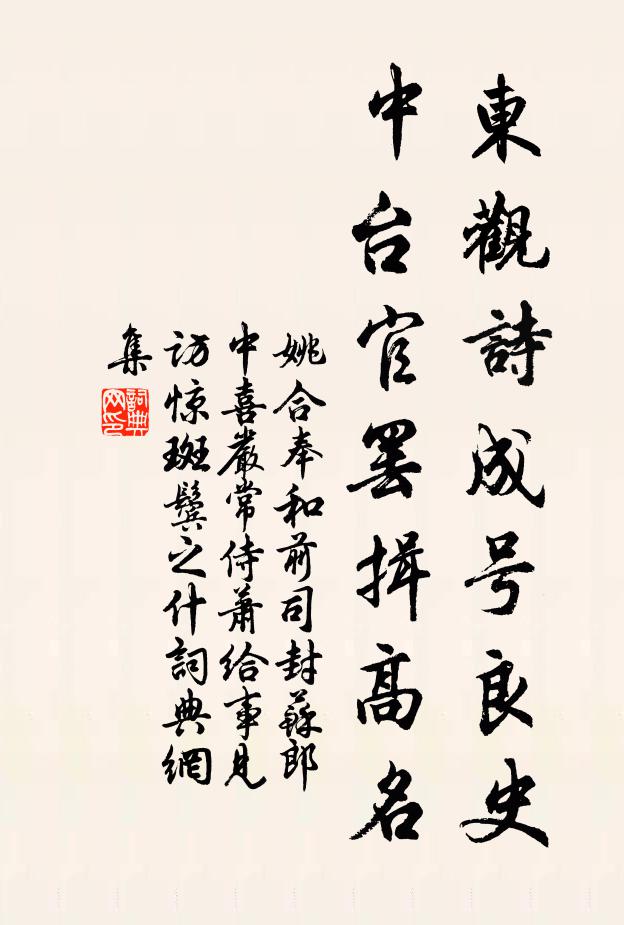 東觀詩成号良史
中台官罢揖高名
姚合奉和前司封蘇郎
中喜嚴常侍蕭給事見
访惊斑鬓之什詞典網
集
詞典网印